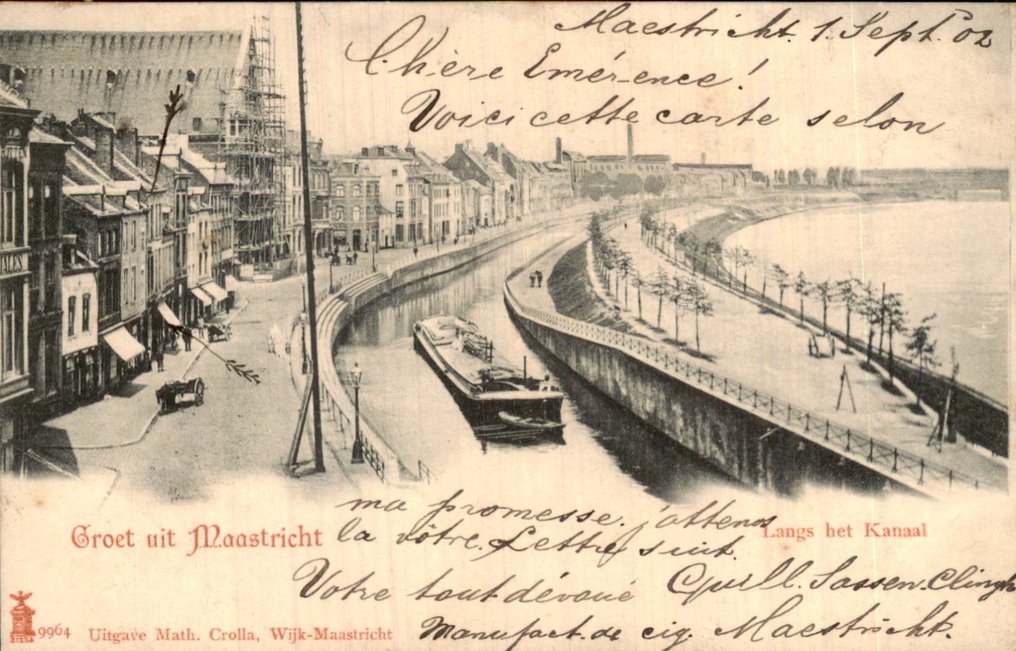 Maestricht. 1. Sept. 02
Chère Emérence!
Voici cette carte selon
ma promesse. j'attends
la vôtre. Lettre suit.
Groet uit Maastricht
Langs het Kanaal
Votre tout dévoué Guill. Sassen.
Manufact. de cig. Maestricht.
9964 Uitgave Math. Crolla, Wijk-Maastricht